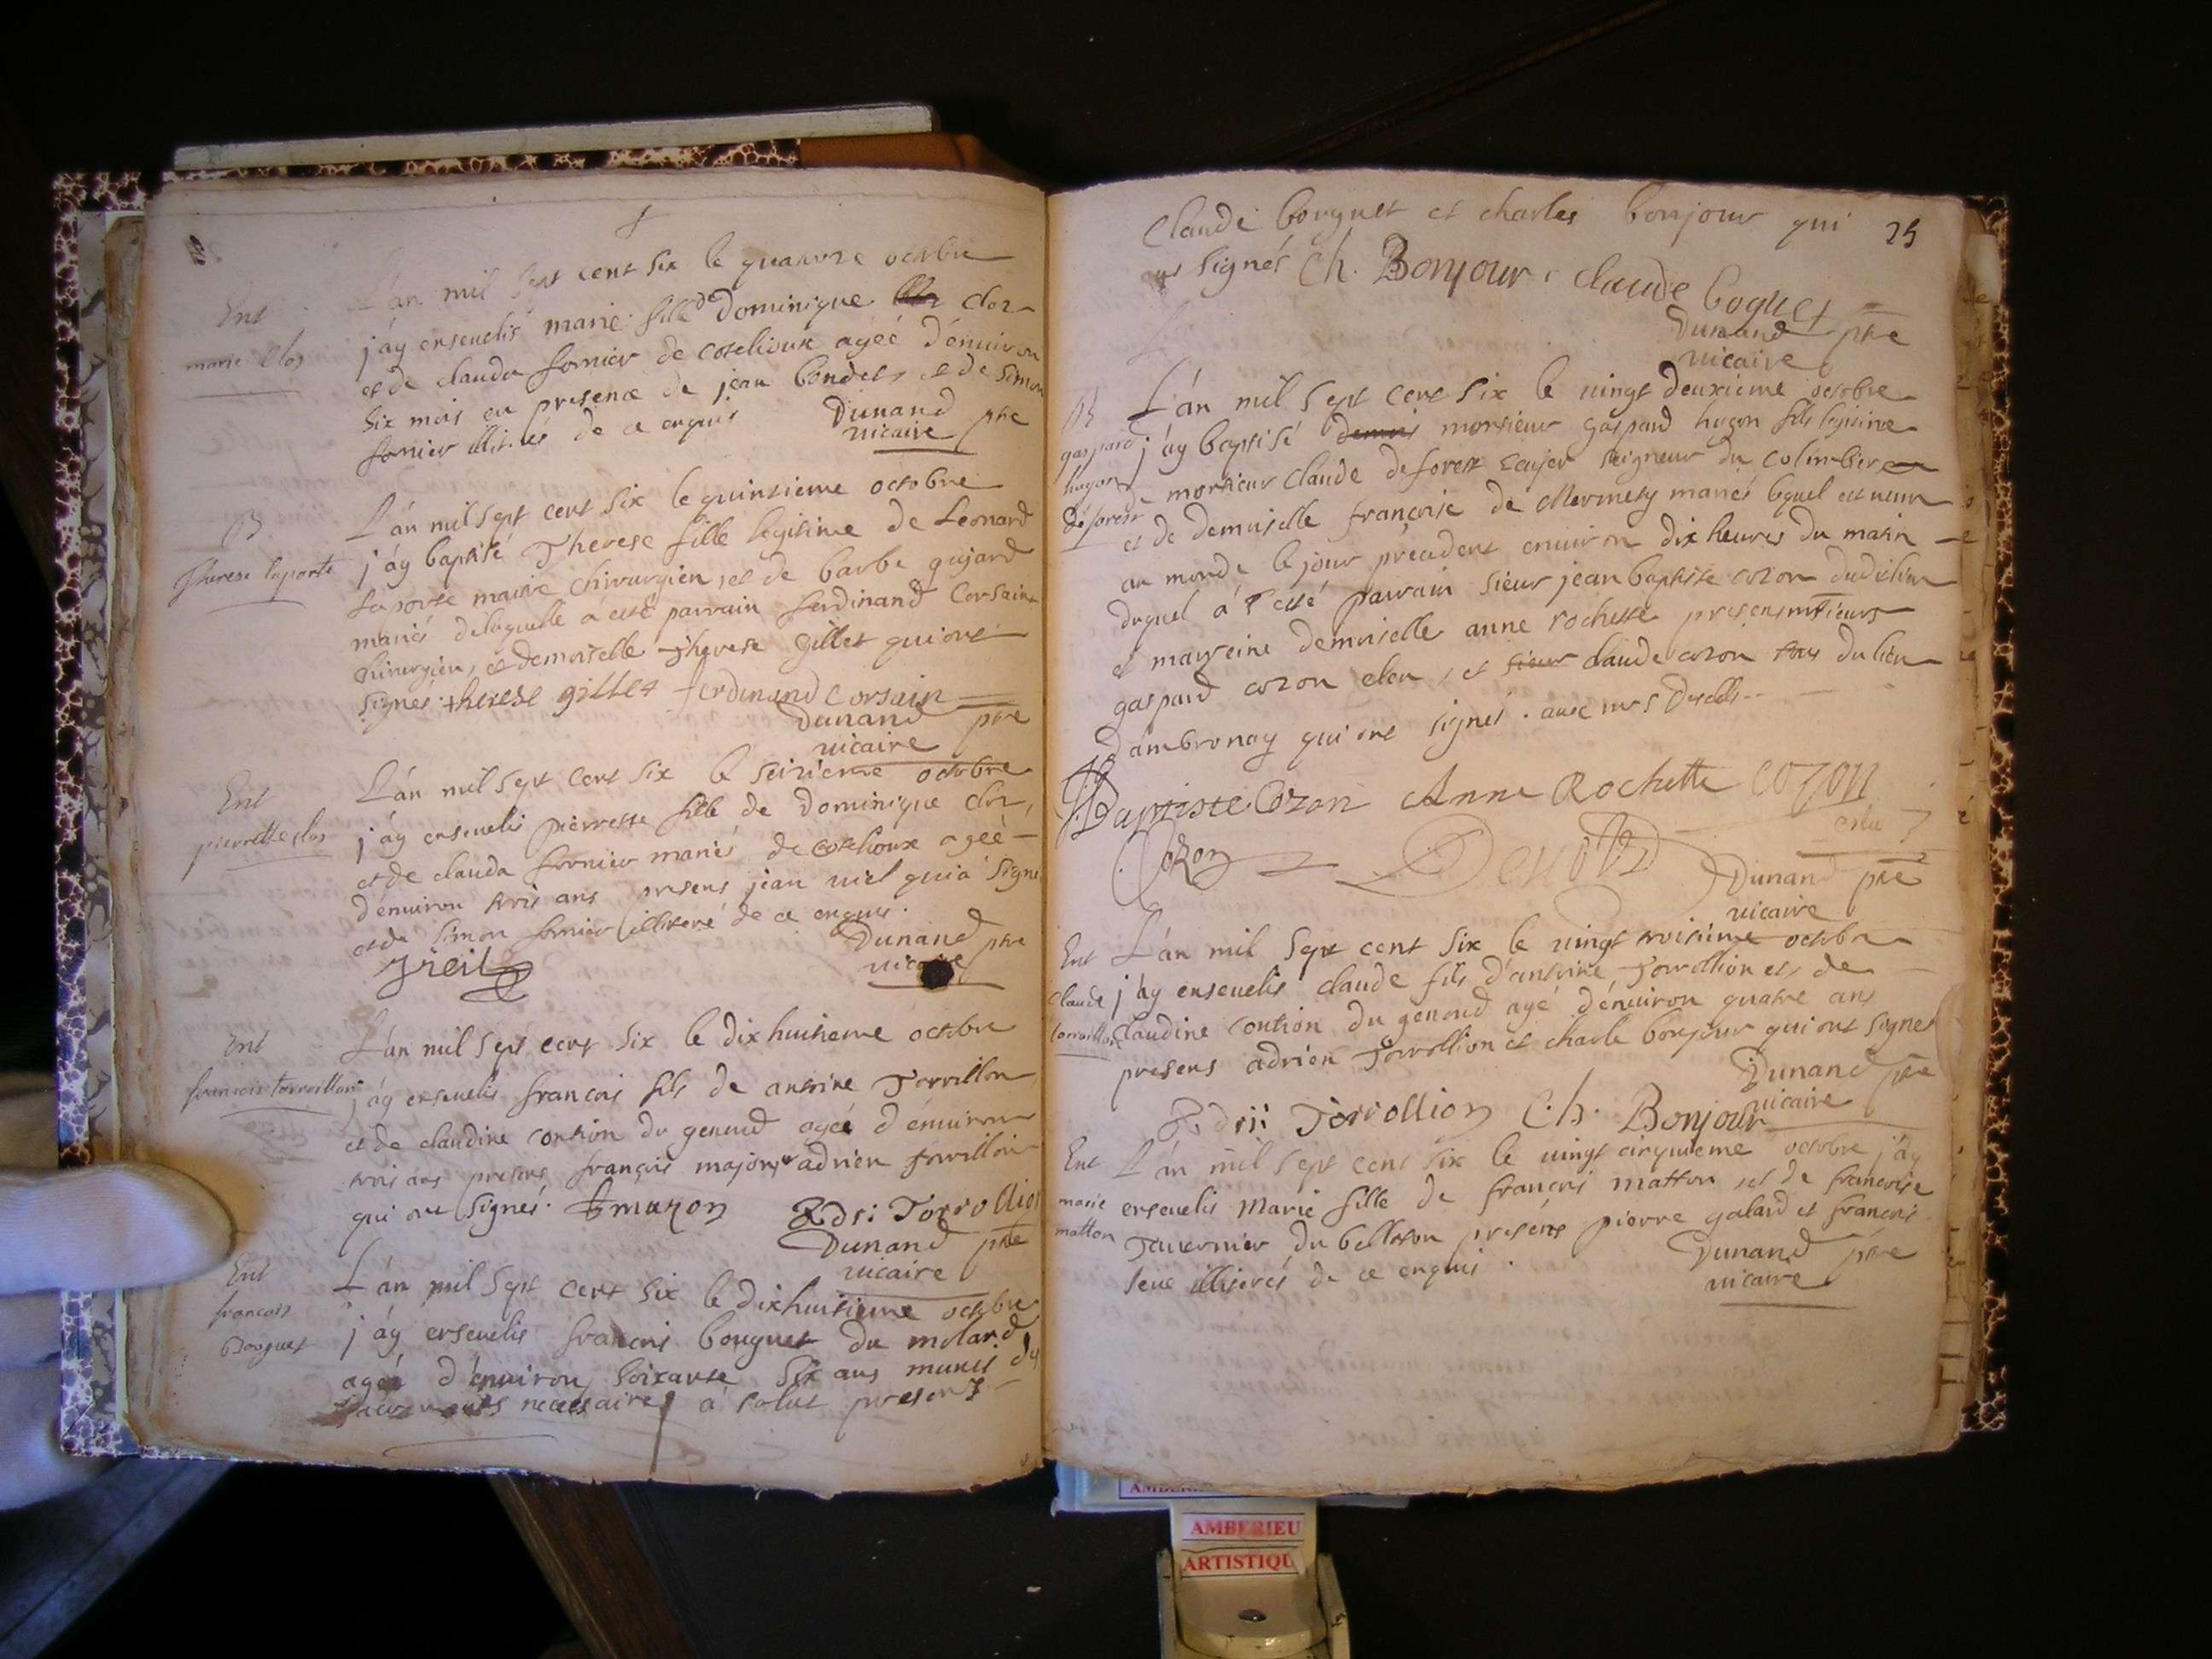 Ent
marie Clos
L'an mil sept cent six le quatorze octobre
j'ay enseuelis marie fille de Dominique clor
et de clauda fornier de cotelioux agéé d'enuiron
six mois en presence de jean bondet et de Simon
fornier illiterés de ce enquis
Dunand ptre
vicaire
B
Therese laporte
L'an mil sept cent six le quinsieme octobre
j'ay baptisé Therese fille legitime de Leonard
laporte maitre chirurgien, et de barbe gujard
mariés delaquelle a esté parrain ferdinand Corsain
chirurgien, et demoiselle therese Gillet qui ont
signés therese gillet ferdinand corsain
Dunand ptre
vicaire
Ent
pierrette clos
L'an mil sept cent six le seizieme octobre
j'ay enseuelis pierrette fille de Dominique clor,
et de clauda fornier mariés de cotelioux ageé
d'enuiron trois ans presens jean viel qui a signé
et de Simon fornier illiteré de ce enquis.
Dunand ptre
vicaire
Jvieil
Ent
francois torroillon
L'an mil sept cent six le dix huitieme octobre
j'ay enseuelis francois fils de antoine Torrillon
et de claudine contion du genoud ageé d'enuiron
trois ans presens françois majorn et adrien torrillion
qui ont signés.
Adri Torrollion
Dunand ptre
vicaire
Ent
francois
Bouguet
L'an mil sept cent six le dixhuitieme octobre
j'ay enseuelis francois bouguet du molard
ageé d'enuiron soixante six ans munis des
sacremens necessaires a salut presens
25
Claude bouguet et charles bonjour qui
ont signés Ch. Bonjour. claude boguet
Dunand ptre
vicaire
B
gaspard
hugon
de forest
L'an mil sept cent six le vingt deuxieme octobre
j'ay baptisé monsieur gaspard hugon fils legitime
de monsieur claude de forest ecuyer seigneur du colombier
et de demoiselle françoise de Mermety mariés lequel est venu
au monde le jour précedent enuiron dix heures du matin
duquel a esté parrain sieur jean baptiste cozon dudit lieu
et marreine demoiselle anne rochette presens mrs sieurs
gaspard cozon eleu, et sieur claude cozon tous du lieu
d'ambronay qui ont signés. auec
JBaptiste Cozon Anne Rochette Cozon
eslu
Cozon
Dunand ptre
vicaire
Ent
claude
torroillon
L'an mil sept cent six le vingt troisieme octobre
j'ay enseuelis claude fils d'antoine Torrollion et de
claudine contion du genoud agé d'enuiron quatre ans
presens adrien Torrollion et charle bonjour qui ont signés
Dunand ptre
vicaire
Adri Torrollion Ch. Bonjour
Ent
marie
matton
L'an mil sept cent six le vingt cinquieme octobre j'ay
enseuelis Marie fille de françois matton et de francoise
Tavernier du bellaton présens pierre galard et francois
seue illiterés de ce enquis.
Dunand ptre
vicaire
AMBERIEU
ARTISTIQU